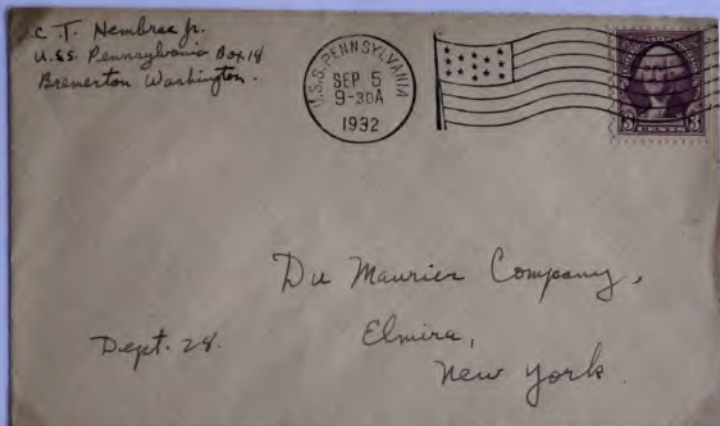 C. T. Hembree Jr.
U.S.S. Pennsylvania Box 18
Bremerton Washington.
U.S.S. PENNSYLVANIA
SEP 5
9-30A
1932
3 CENTS 3
Du Maurier Company,
Dept. 28.
Elmira,
New York.